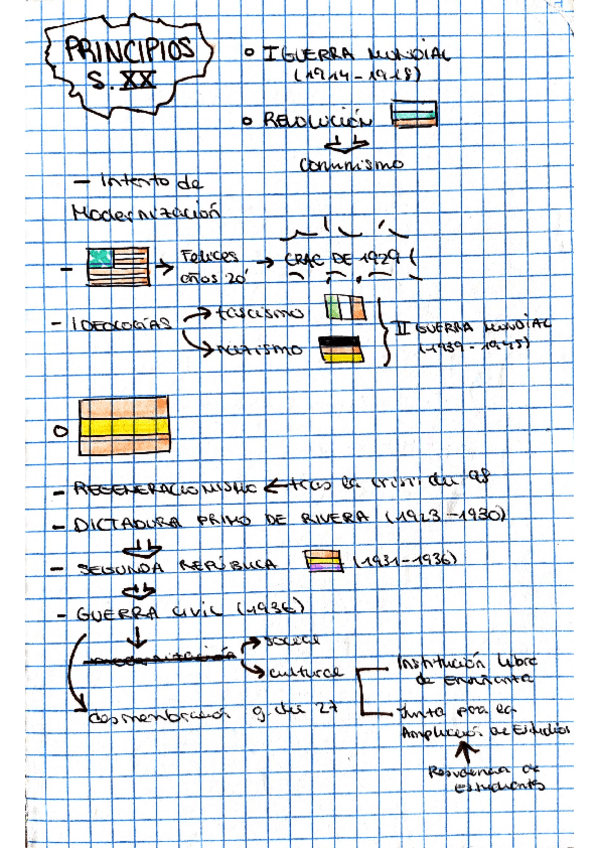 PRINCIPIOS
S. XX
○ I GUERRA MUNDIAL
(1914-1918)
○ REVOLUCIÓN
Comunismo
- Intento de
Modernización
- → Felices años 20' → CRAC DE 1929
- IDEOLOGÍAS → fascismo
→ nazismo
II GUERRA MUNDIAL
(1939-1945)
○
- REGENERACIONISMO ← tras la crisis del 98
- DICTADURA PRIMO DE RIVERA (1923-1930)
- SEGUNDA REPÚBLICA (1931-1936)
- GUERRA CIVIL (1936)
modernización → social
→ cultural
Institución libre
de Enseñanza
Junta para la
Ampliación de Estudios
Residencia de
estudiantes
desmembración g. del 27